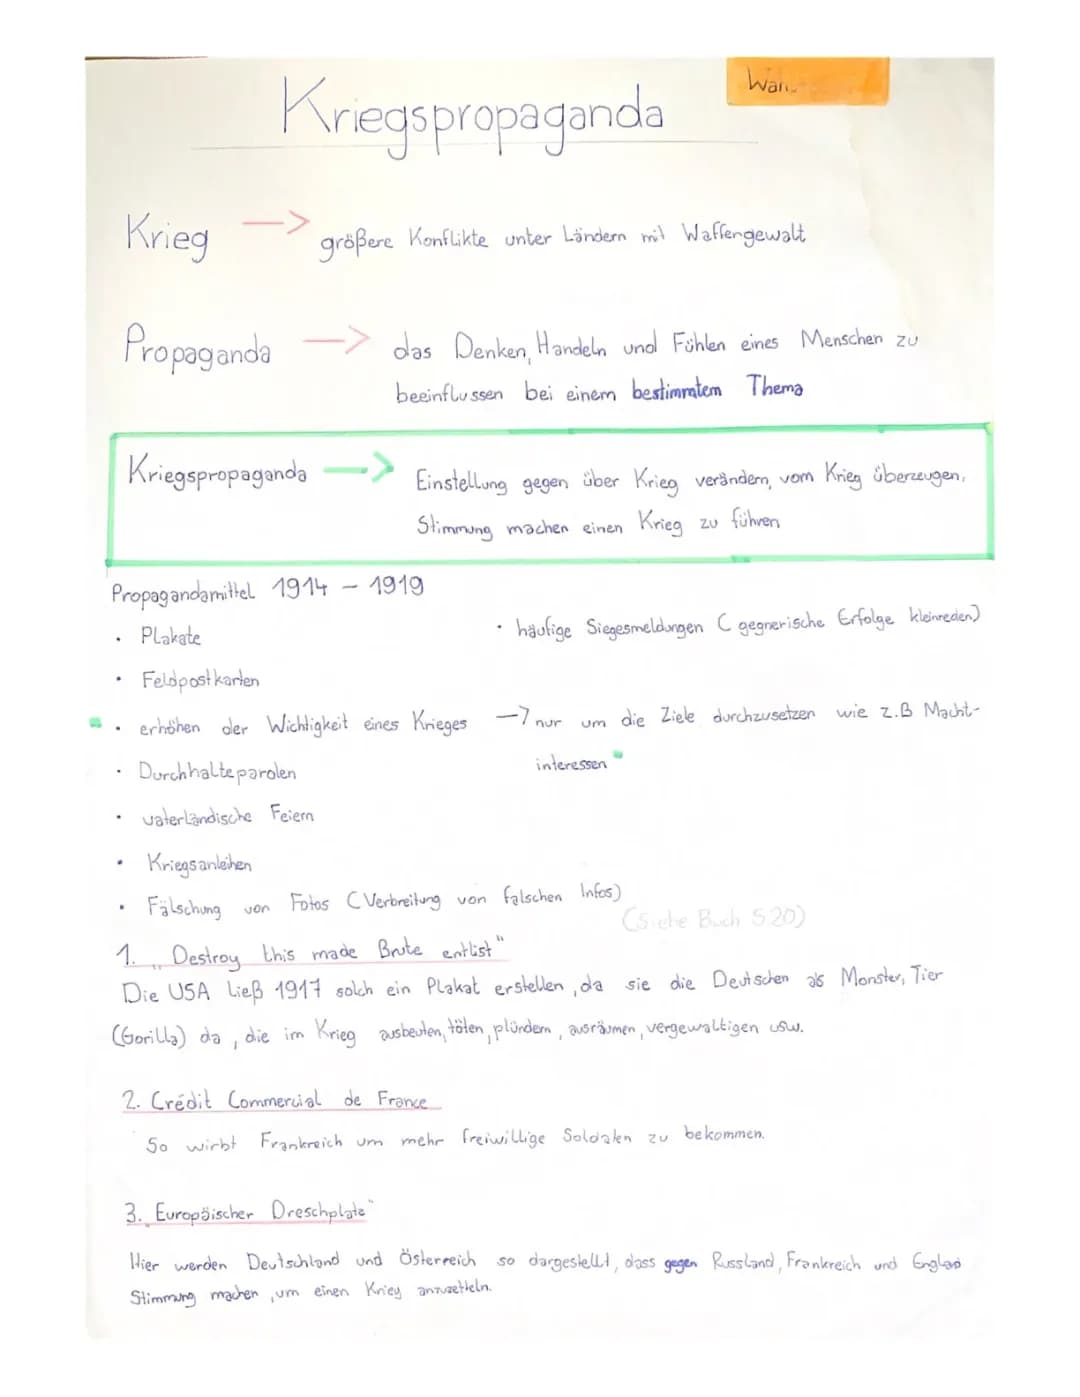 Kriegspropaganda
Krieg —> größere Konflikte unter Ländern mit Waffengewalt
Propaganda —> das Denken, Handeln und Fühlen eines Menschen zu
beeinflussen bei einem bestimmtem Thema
Kriegspropaganda —> Einstellung gegen über Krieg verändern, vom Krieg überzeugen,
Stimmung machen einen Krieg zu führen
Propagandamittel 1914 – 1919
• Plakate
• häufige Siegesmeldungen (gegnerische Erfolge kleinreden)
• Feldpostkarten
• erhöhen der Wichtigkeit eines Krieges —> nur um die Ziele durchzusetzen wie z.B Macht-
interessen
• Durchhalteparolen
• vaterländische Feiern
• Kriegsanleihen
• Fälschung von Fotos (Verbreitung von falschen Infos)
(Siehe Buch S.20)
1. „Destroy this made Brute entlist"
Die USA ließ 1917 solch ein Plakat erstellen, da sie die Deutschen als Monster, Tier
(Gorilla) da, die im Krieg ausbeuten, töten, plündern, ausräumen, vergewaltigen usw.
2. Crédit Commercial de France
So wirbt Frankreich um mehr freiwillige Soldaten zu bekommen.
3. Europäischer Dreschplate"
Hier werden Deutschland und Österreich so dargestellt, dass gegen Russland, Frankreich und England
Stimmung machen, um einen Krieg anzuzetteln.